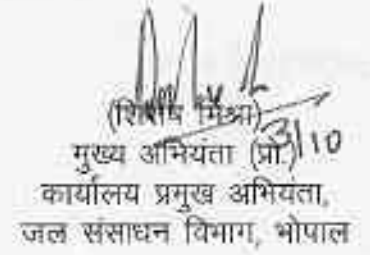 (शिरीष मिश्रा)
3/10
मुख्य अभियंता (प्रा.)
कार्यालय प्रमुख अभियंता,
जल संसाधन विभाग, भोपाल